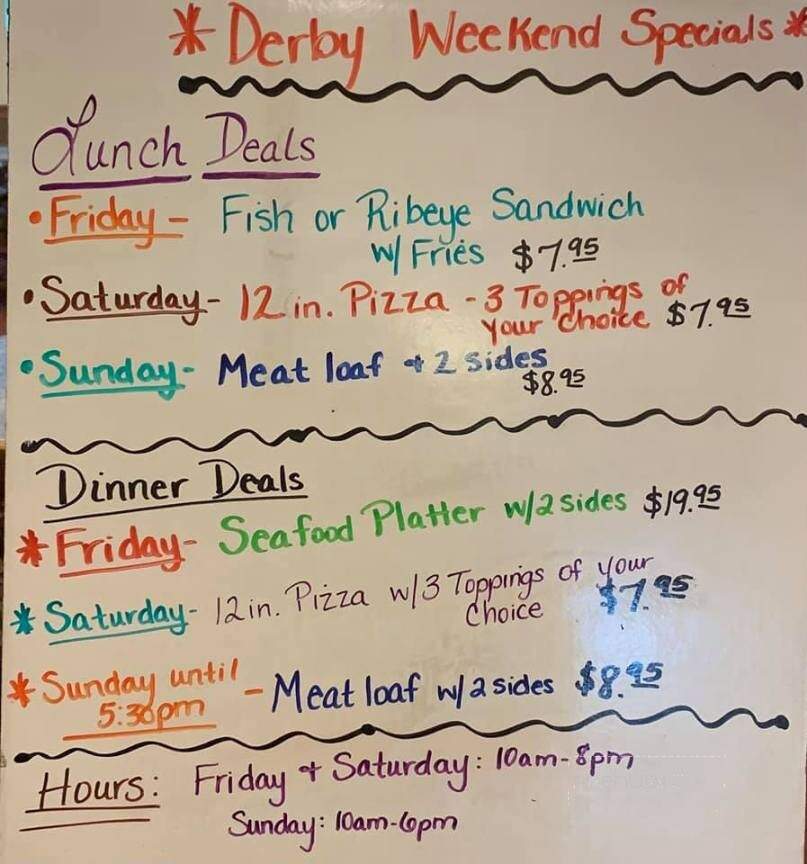 * Derby Weekend Specials *
Lunch Deals
• Friday - Fish or Ribeye Sandwich
w/ Fries $7.95
• Saturday - 12 in. Pizza - 3 Toppings of
your Choice $7.95
• Sunday - Meat loaf + 2 sides
$8.95
Dinner Deals
* Friday - Seafood Platter w/2 sides $19.95
* Saturday - 12 in. Pizza w/3 Toppings of your
Choice $7.95
* Sunday until
5:30pm - Meat loaf w/2 sides $8.95
Hours: Friday + Saturday: 10am-8pm
Sunday: 10am-6pm